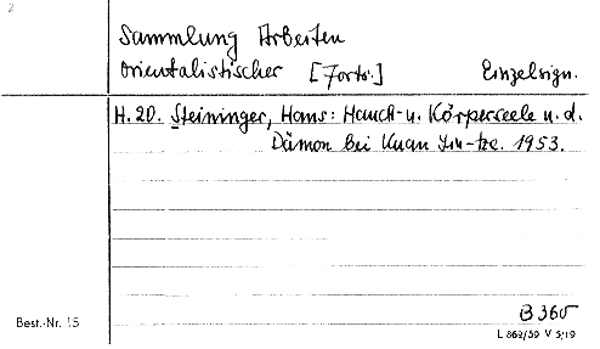 2
Sammlung Arbeiten
orientalistischer [Forts.]
Einzelsign.
H. 20. Steininger, Hans: Hauch- u. Körperseele u. d.
Dämon bei Kuan Yin-tze. 1953.
B 360
Best.-Nr. 15
L 862/59 V 5/19